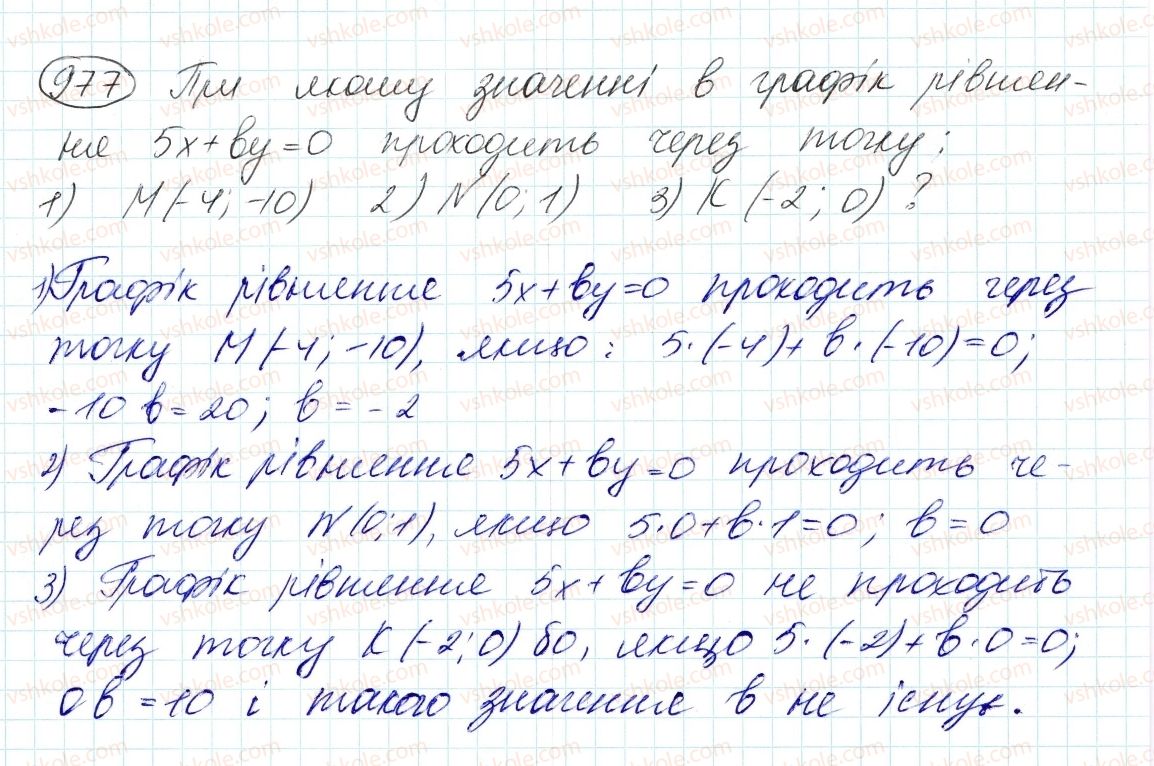 977 При якому значенні в графік рівнян-
ня 5x+вy=0 проходить через точку;
1) M(-4; -10) 2) N(0; 1) 3) K(-2; 0)?
1) Графік рівняння 5x+вy=0 проходить через
точку M(-4; -10), якщо: 5·(-4)+в·(-10)=0;
-10в=20; в=-2
2) Графік рівняння 5x+вy=0 проходить че-
рез точку N(0;1), якщо 5·0+в·1=0; в=0
3) Графік рівняння 5x+вy=0 не проходить
через точку K(-2;0) бо, якщо 5·(-2)+в·0=0;
0в=10 і такого значення в не існує.